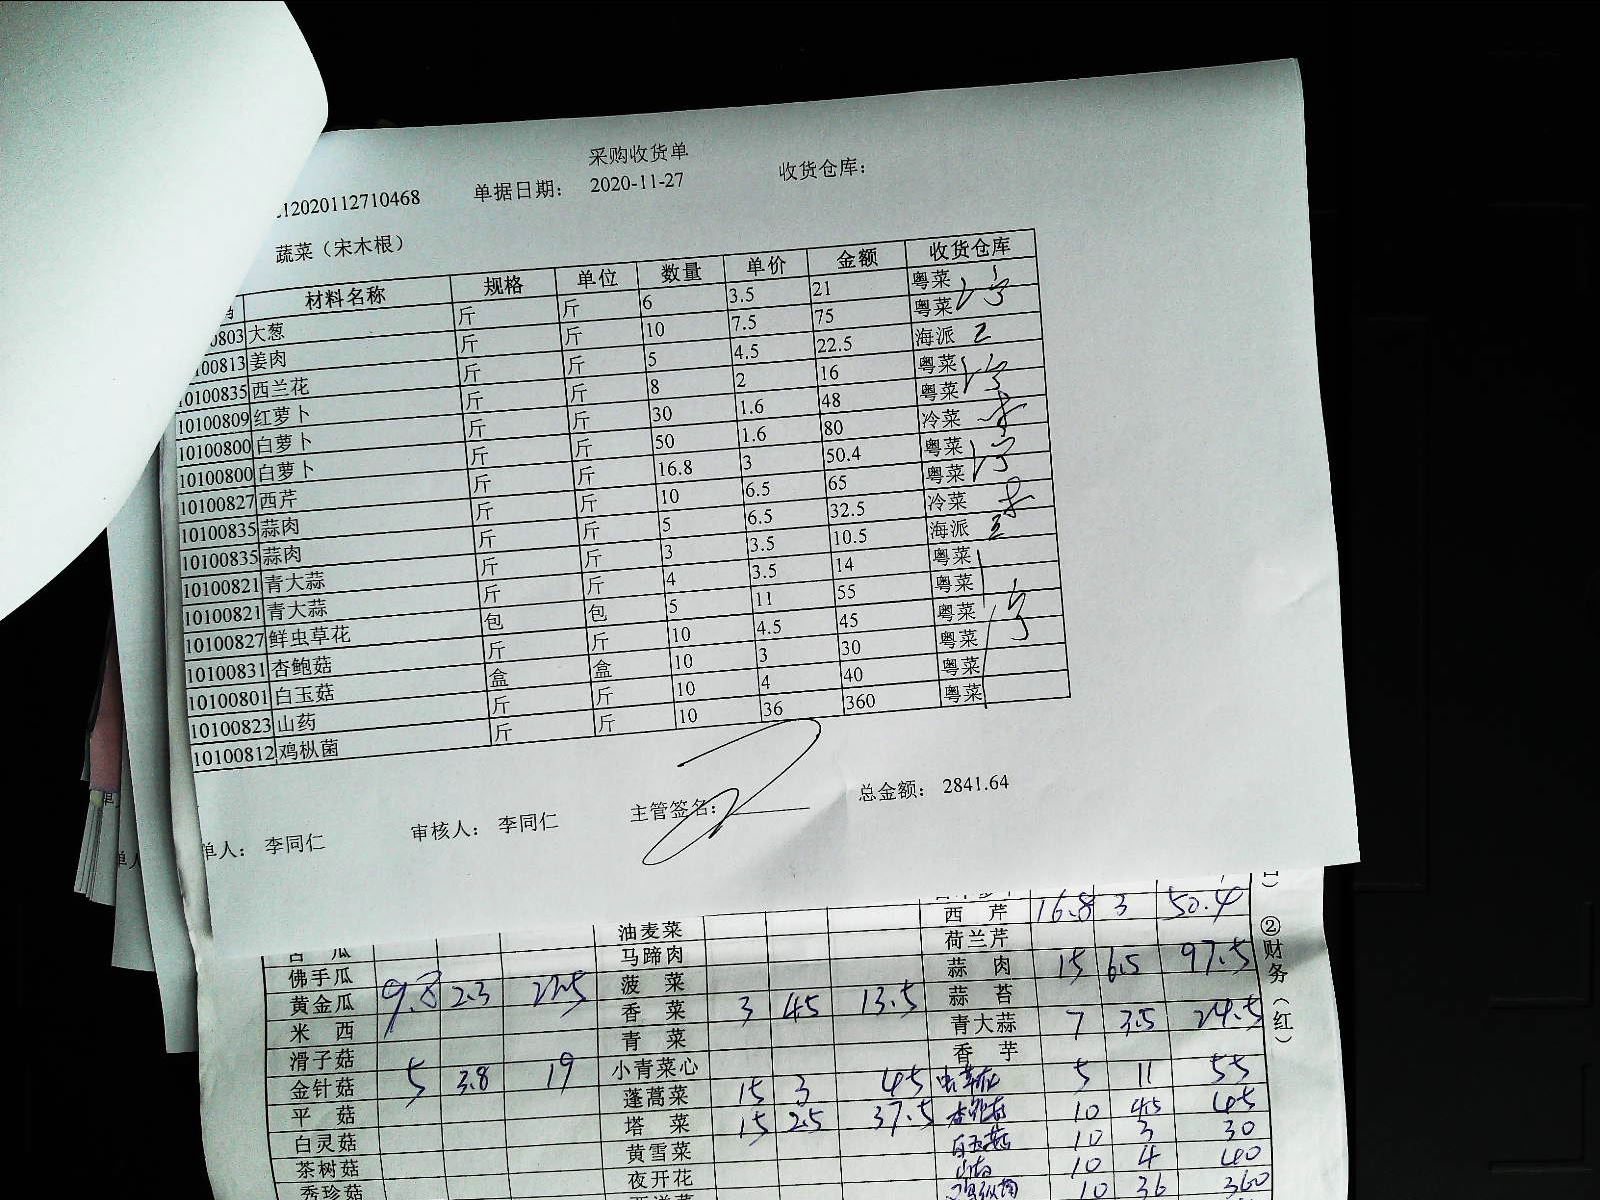 采购收货单
12020112710468 单据日期： 2020-11-27 收货仓库：
蔬菜（宋木根）
材料名称 规格 单位 数量 单价 金额 收货仓库
0803 大葱 斤 斤 6 3.5 21 粤菜
100813 姜肉 斤 斤 10 7.5 75 粤菜
10100835 西兰花 斤 斤 5 4.5 22.5 海派 2
10100809 红萝卜 斤 斤 8 2 16 粤菜
10100800 白萝卜 斤 斤 30 1.6 48 粤菜
10100800 白萝卜 斤 斤 50 1.6 80 冷菜
10100827 西芹 斤 斤 16.8 3 50.4 粤菜
10100835 蒜肉 斤 斤 10 6.5 65 粤菜
10100835 蒜肉 斤 斤 5 6.5 32.5 冷菜
10100821 青大蒜 斤 斤 3 3.5 10.5 海派
10100821 青大蒜 斤 斤 4 3.5 14 粤菜
10100827 鲜虫草花 包 包 5 11 55 粤菜
10100831 杏鲍菇 斤 斤 10 4.5 45 粤菜
10100801 白玉菇 盒 盒 10 3 30 粤菜
10100823 山药 斤 斤 10 4 40 粤菜
10100812 鸡枞菌 斤 斤 10 36 360 粤菜
单人： 李同仁 审核人： 李同仁 主管签名： 总金额： 2841.64
油麦菜 西芹 16.8 3 50.4
佛手瓜 马蹄肉 荷兰芹
黄金瓜 9.8 2.3 22.5 菠菜 蒜肉 15 6.5 97.5
米西 香菜 3 4.5 13.5 蒜苔
滑子菇 青菜 青大蒜 7 3.5 24.5
金针菇 5 3.8 19 小青菜心 香芋
平菇 蓬蒿菜 15 3 45 虫草花 5 11 55
白灵菇 塔菜 15 2.5 37.5 杏鲍菇 10 4.5 45
茶树菇 黄雪菜 白玉菇 10 3 30
秀珍菇 夜开花 山药 10 4 40
鸡枞菌 10 36 360
②财务（红）